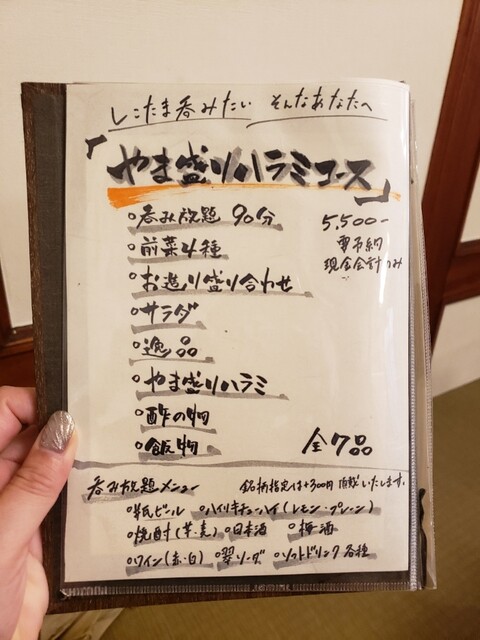 しこたま呑みたい そんなあなたへ
「やま盛りハラミコース」
○呑み放題 90分
5,500-
○前菜4種
要予約
現金会計のみ
○お造り盛り合わせ
○サラダ
○逸品
○やま盛りハラミ
○酢の物
○飯物
全7品
呑み放題メニュー 銘柄指定は+300円頂戴いたします。
○瓶ビール ○ハイリキチューハイ(レモン・プレーン)
○焼酎(芋・麦) ○日本酒 ○梅酒
○ワイン(赤・白) ○翠ソーダ ○ソフトドリンク各種